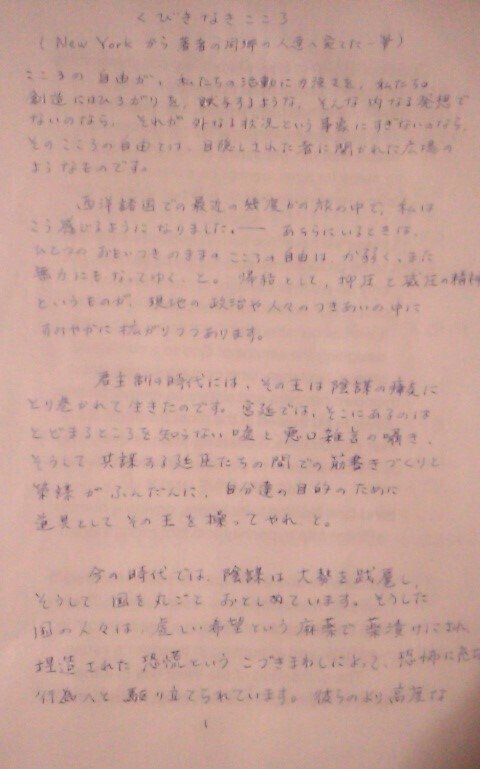 くびきなきこころ
(New York から 著者の同郷の人達へ宛てた一筆)
こころの自由が、私たちの活動に力強さを、私たちの
創造にはひろがりを、賦与するような、そんな内なる発想で
ないのなら、それが外なる状況という事象にすぎないのなら、
そのこころの自由では、目隠しされた者に開かれた広場の
ようなものです。
西洋諸国での最近の幾度かの旅の中で、私は
こう感じるようになりました。── あちらにいるときは、
ひとつのおもいつきのままのこころの自由は、か弱く、また
無力にもなってゆく、と。帰結として、抑圧と威圧の精神
というものが、現地の政治や人々のつきあいの中に
すみやかに拡がりつつあります。
君主制の時代には、その王は陰謀の
とり巻かれて生きたのです。宮廷では、そこにあるのは
とどまるところを知らない嘘と悪口雑言の囁き、
そうして共謀する廷臣たちの間での筋書きづくりと
策謀がふんだんに、自分達の目的のために
道具としてその王を操ってやれ と。
今の時代では、陰謀は大勢を践麗し、
そうして国を丸ごとおとしめています。そうした
国の人々は、虚しい希望という麻薬で薬漬けにされ、
捏造された恐慌というこづきまわしによって、恐怖に
行為へと駆り立てられています。彼らのより高度な
1